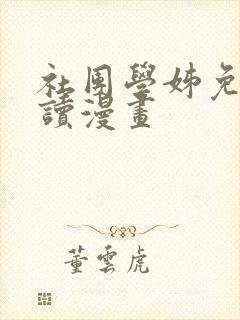 社團學姊免
讀漫畫
董雲虎